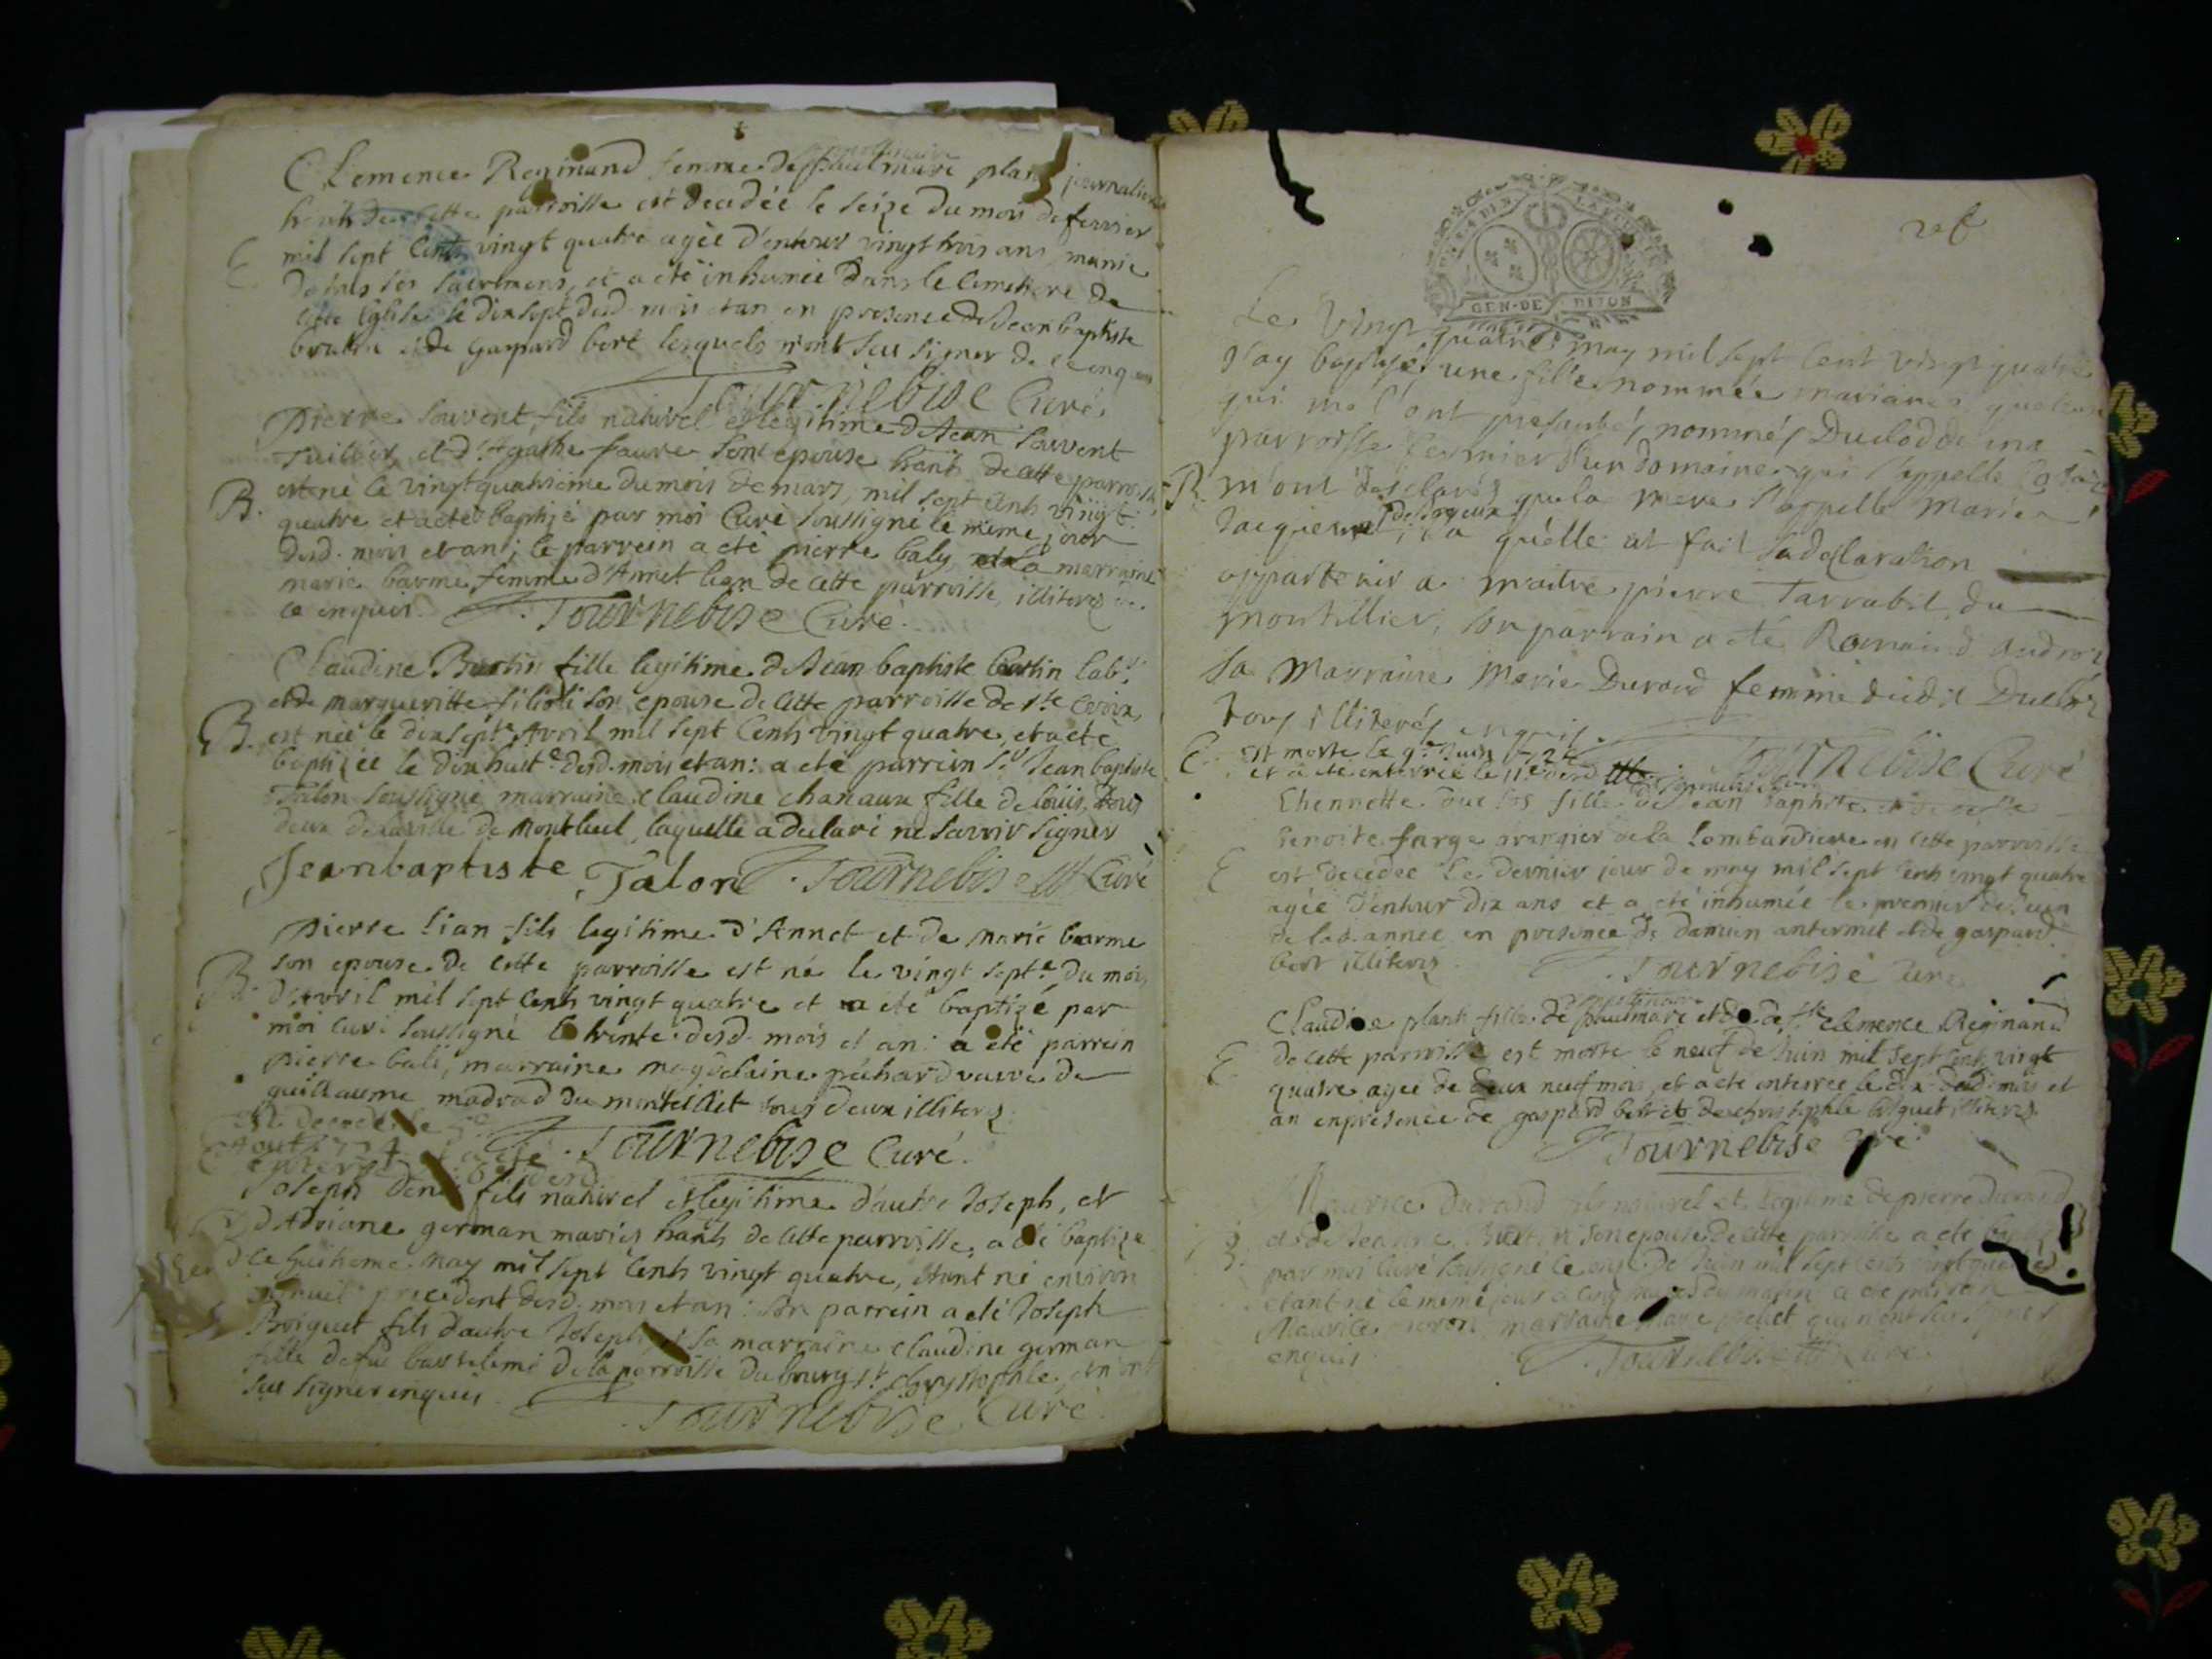 Clemence Reginand femme de paulmare plant journalier
hants de cette parroisse est decedée le seize du mois de fevrier
E mil sept cents vingt quatre agée d'entour vingt trois ans munie
de tous ses sacremens, et a eté inhumée dans le cimetiere de
cette Eglise le dix sept desd. mois et an en presence de Jean baptiste
et de Gaspard bert lesquels n'ont sceu signer de ce enquis
Tournebise Curé
Pierre Souvent fils naturel et legitime de Jean Souvent
et d'Agathe faure son epouse hants de cette parroisse
B. est né le vingt quatrieme du mois de mars, mil sept cents vingt
quatre et a eté baptisé par moi Curé soussigné le meme jour
desd. mois et an; le parrein a eté pierre baly et la marraine
marie barme femme d'Annet lian de cette parroisse, illiterez
ce enquis. Tournebise Curé.
Claudine Bertin fille legitime de Jean baptiste Bertin lab.r
et de margueritte son epouse de cette parroisse de Ste Croix,
B. est née le dix sept.e Avril mil sept cents vingt quatre, et a eté
baptizée le dix huit.e desd. mois et an: a eté parrein S.r Jean baptiste
Talon soussigné marraine Claudine chanaux fille de Loüis, tous
deux de la ville de Montluel, laquelle a declaré ne sçavoir signer
Jeanbaptiste Talon Tournebise Curé
Pierre lian fils legitime d'Annet et de Marie barme
son epouse de cette parroisse est né le vingt sept.e du mois
B. d'Avril mil sept cents vingt quatre et a eté baptizé par
moi curé soussigné le trente desd. mois et an: a eté parrein
pierre bali, marraine magdelaine péchard vauve de
guillaume madrad du montellier tous deux illiterez
Est decedé le
E Aout 1724 a eté
enterré desd
Tournebise Curé.
Joseph fils naturel et legitime d'autre Joseph, et
B d'Adriane german mariés hants de cette parroisse, a eté baptizé
le huitieme may mil sept cents vingt quatre, etant né environ
precedent desd. mois et an: son parrein a eté Joseph
Boiquet fils d'autre Joseph et sa marraine claudine german
fille de feu barthelemi de la parroisse du bourg st. Chrystophle, et n'ont
sceu signer enquis.
Tournebise Curé.
GEN·DE DIJON
Le Vingt quatre may mil sept cent vingt quatre
J'ay baptisé une fille nommée mariane que ceux
qui me l'ont presenté, nommés Duclod de ma
parroisse fermier d'un domaine qui s'appelle
B. m'ont desclarés que la mere s'appelle Marie
a qu'elle at fait sa desclaration
appartenir a maitre pierre Tarrabit du
montellier, son parrain a eté Romain Audroz
sa Marraine Marie Durand femme dudit Ducloz
tous illiterés enquis.
E est morte le 9.e Juin 1724
et a eté enterrée le 11.e
Tournebise Curé
Ehennette fille de Jean baptiste et de
benoite farge grangier de la Lombardiere en cette parroisse
E est decedée le dernier jour de may mil sept cents vingt quatre
agée d'entour dix ans et a eté inhumée le premier de Juin
de lad. année en presence de damien antermet et de gaspard
bert illiterez
Tournebise Curé
Claudine plant fille de paulmare et de Clemence Reginand
de cette parroisse est morte le neuf de Juin mil sept cents vingt
E quatre agée de deux neuf mois, et a eté enterrée le dix desd. mois et
an en presence de gaspard bert et de christophle boiquet illiterez.
Tournebise Curé
Maurice Durand fils naturel et legitime de pierre durand
et de Jeanne son epouse de cette parroisse a eté baptisé
B. par moi Curé soussigné le onze de Juin mil sept cents vingt quatre
etant né le meme jour a cinq heures du matin a eté parrein
Maurice marraine qui n'ont sceu signer
enquis
Tournebise Curé